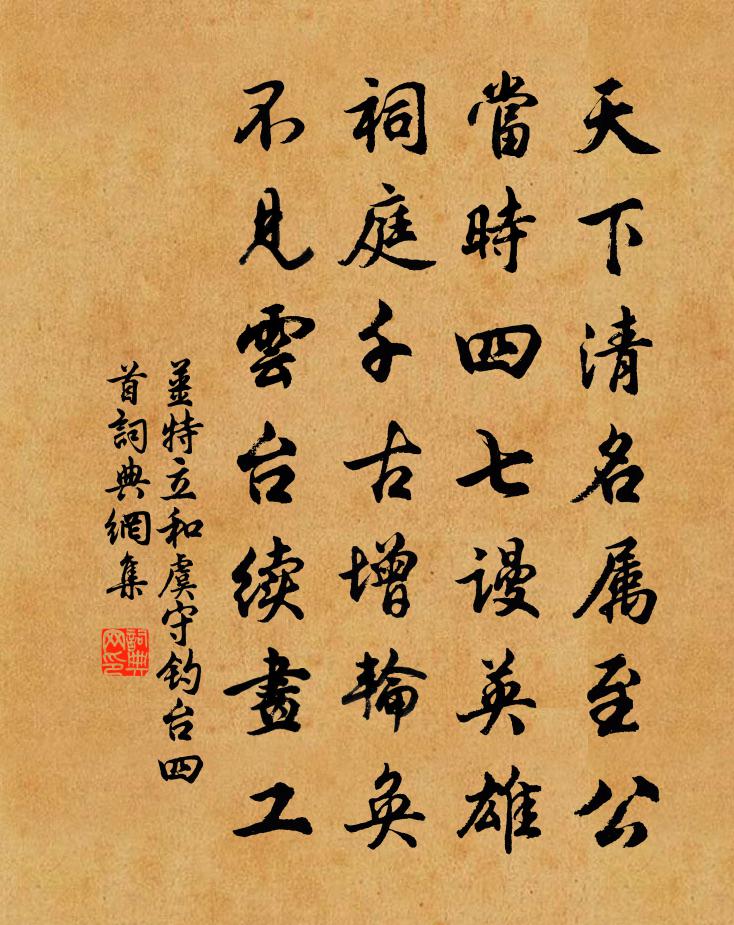 天下清名属至公
當時四七謾英雄
祠庭千古增輪奂
不見雲台续畫工
姜特立和虞守钓台四
首詞典網集
詞典网印